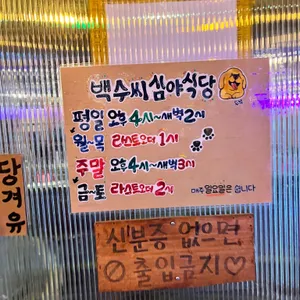 백수씨심야식당
평일 오후 4시~새벽 2시
월~목 라스트오더 1시
주말 오후 4시~새벽 3시
금~토 라스트오더 2시
매주 일요일은 쉽니다
당겨유
신분증 없으면
출입금지♡